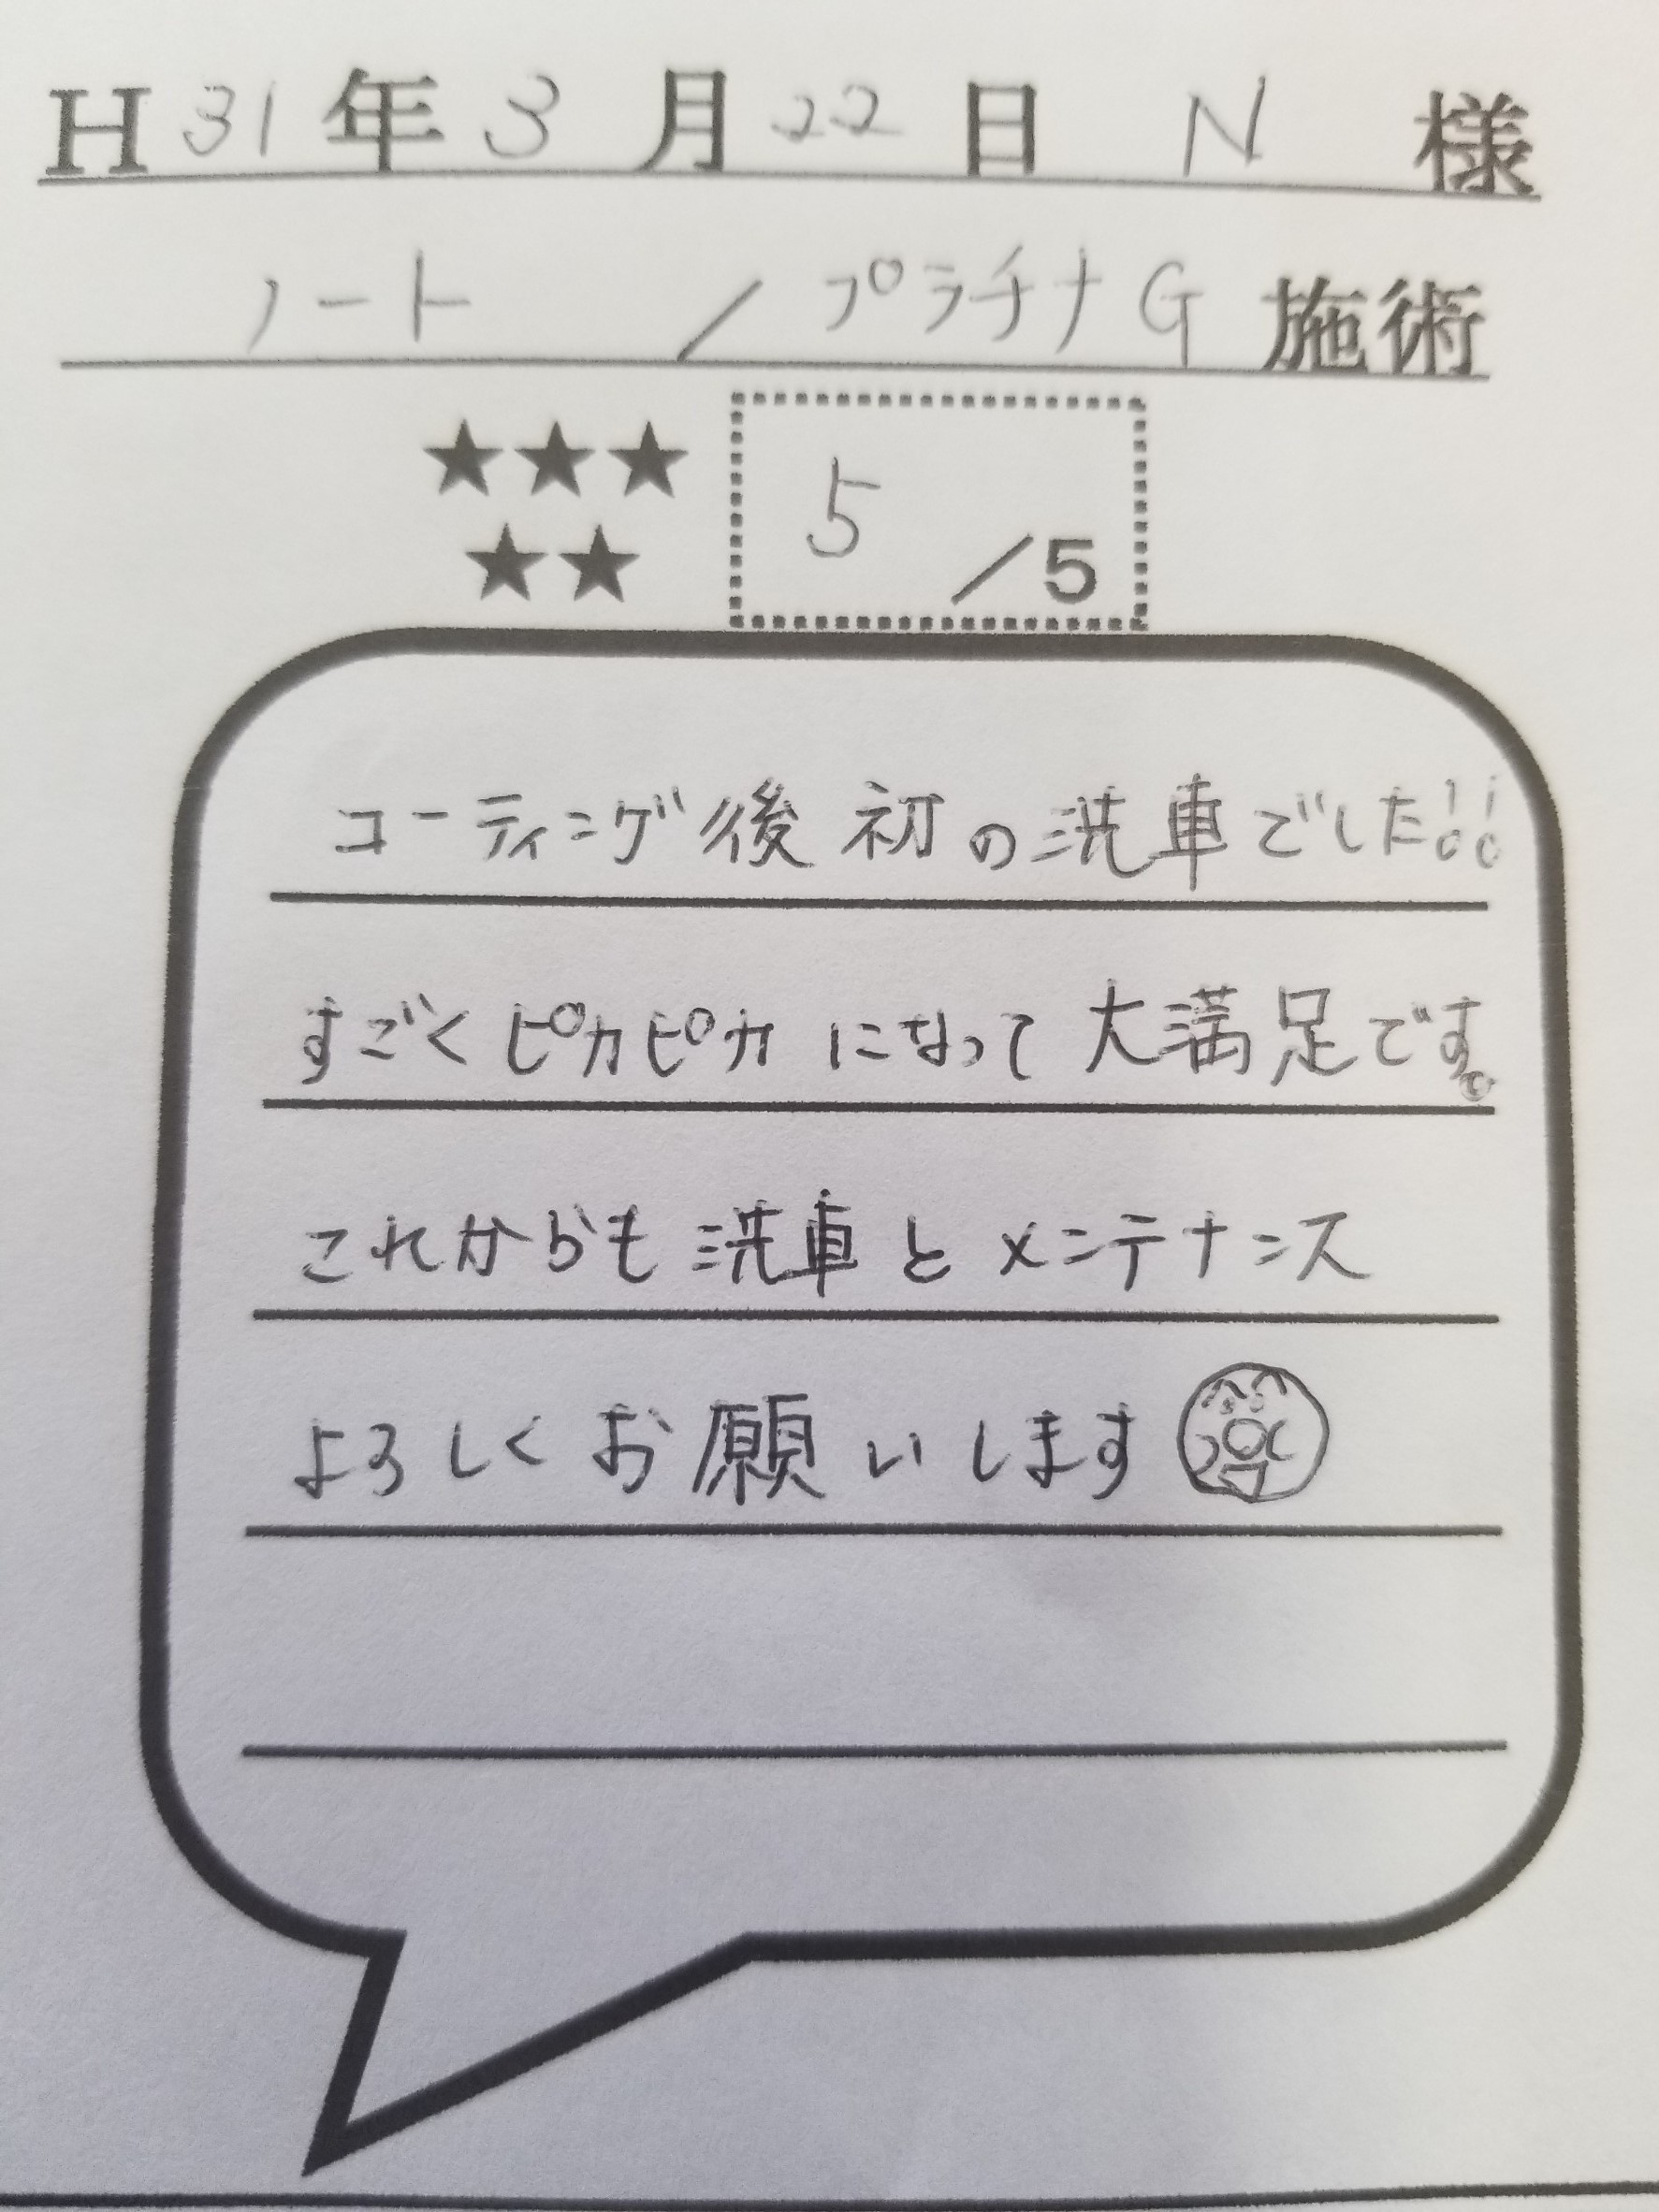 H31年3月22日 N 様
ノート / プラチナG 施術
★★★
★★
5 /5
コーティング後初の洗車でした!!
すごくピカピカになって大満足です。
これからも洗車とメンテナンス
よろしくお願いします